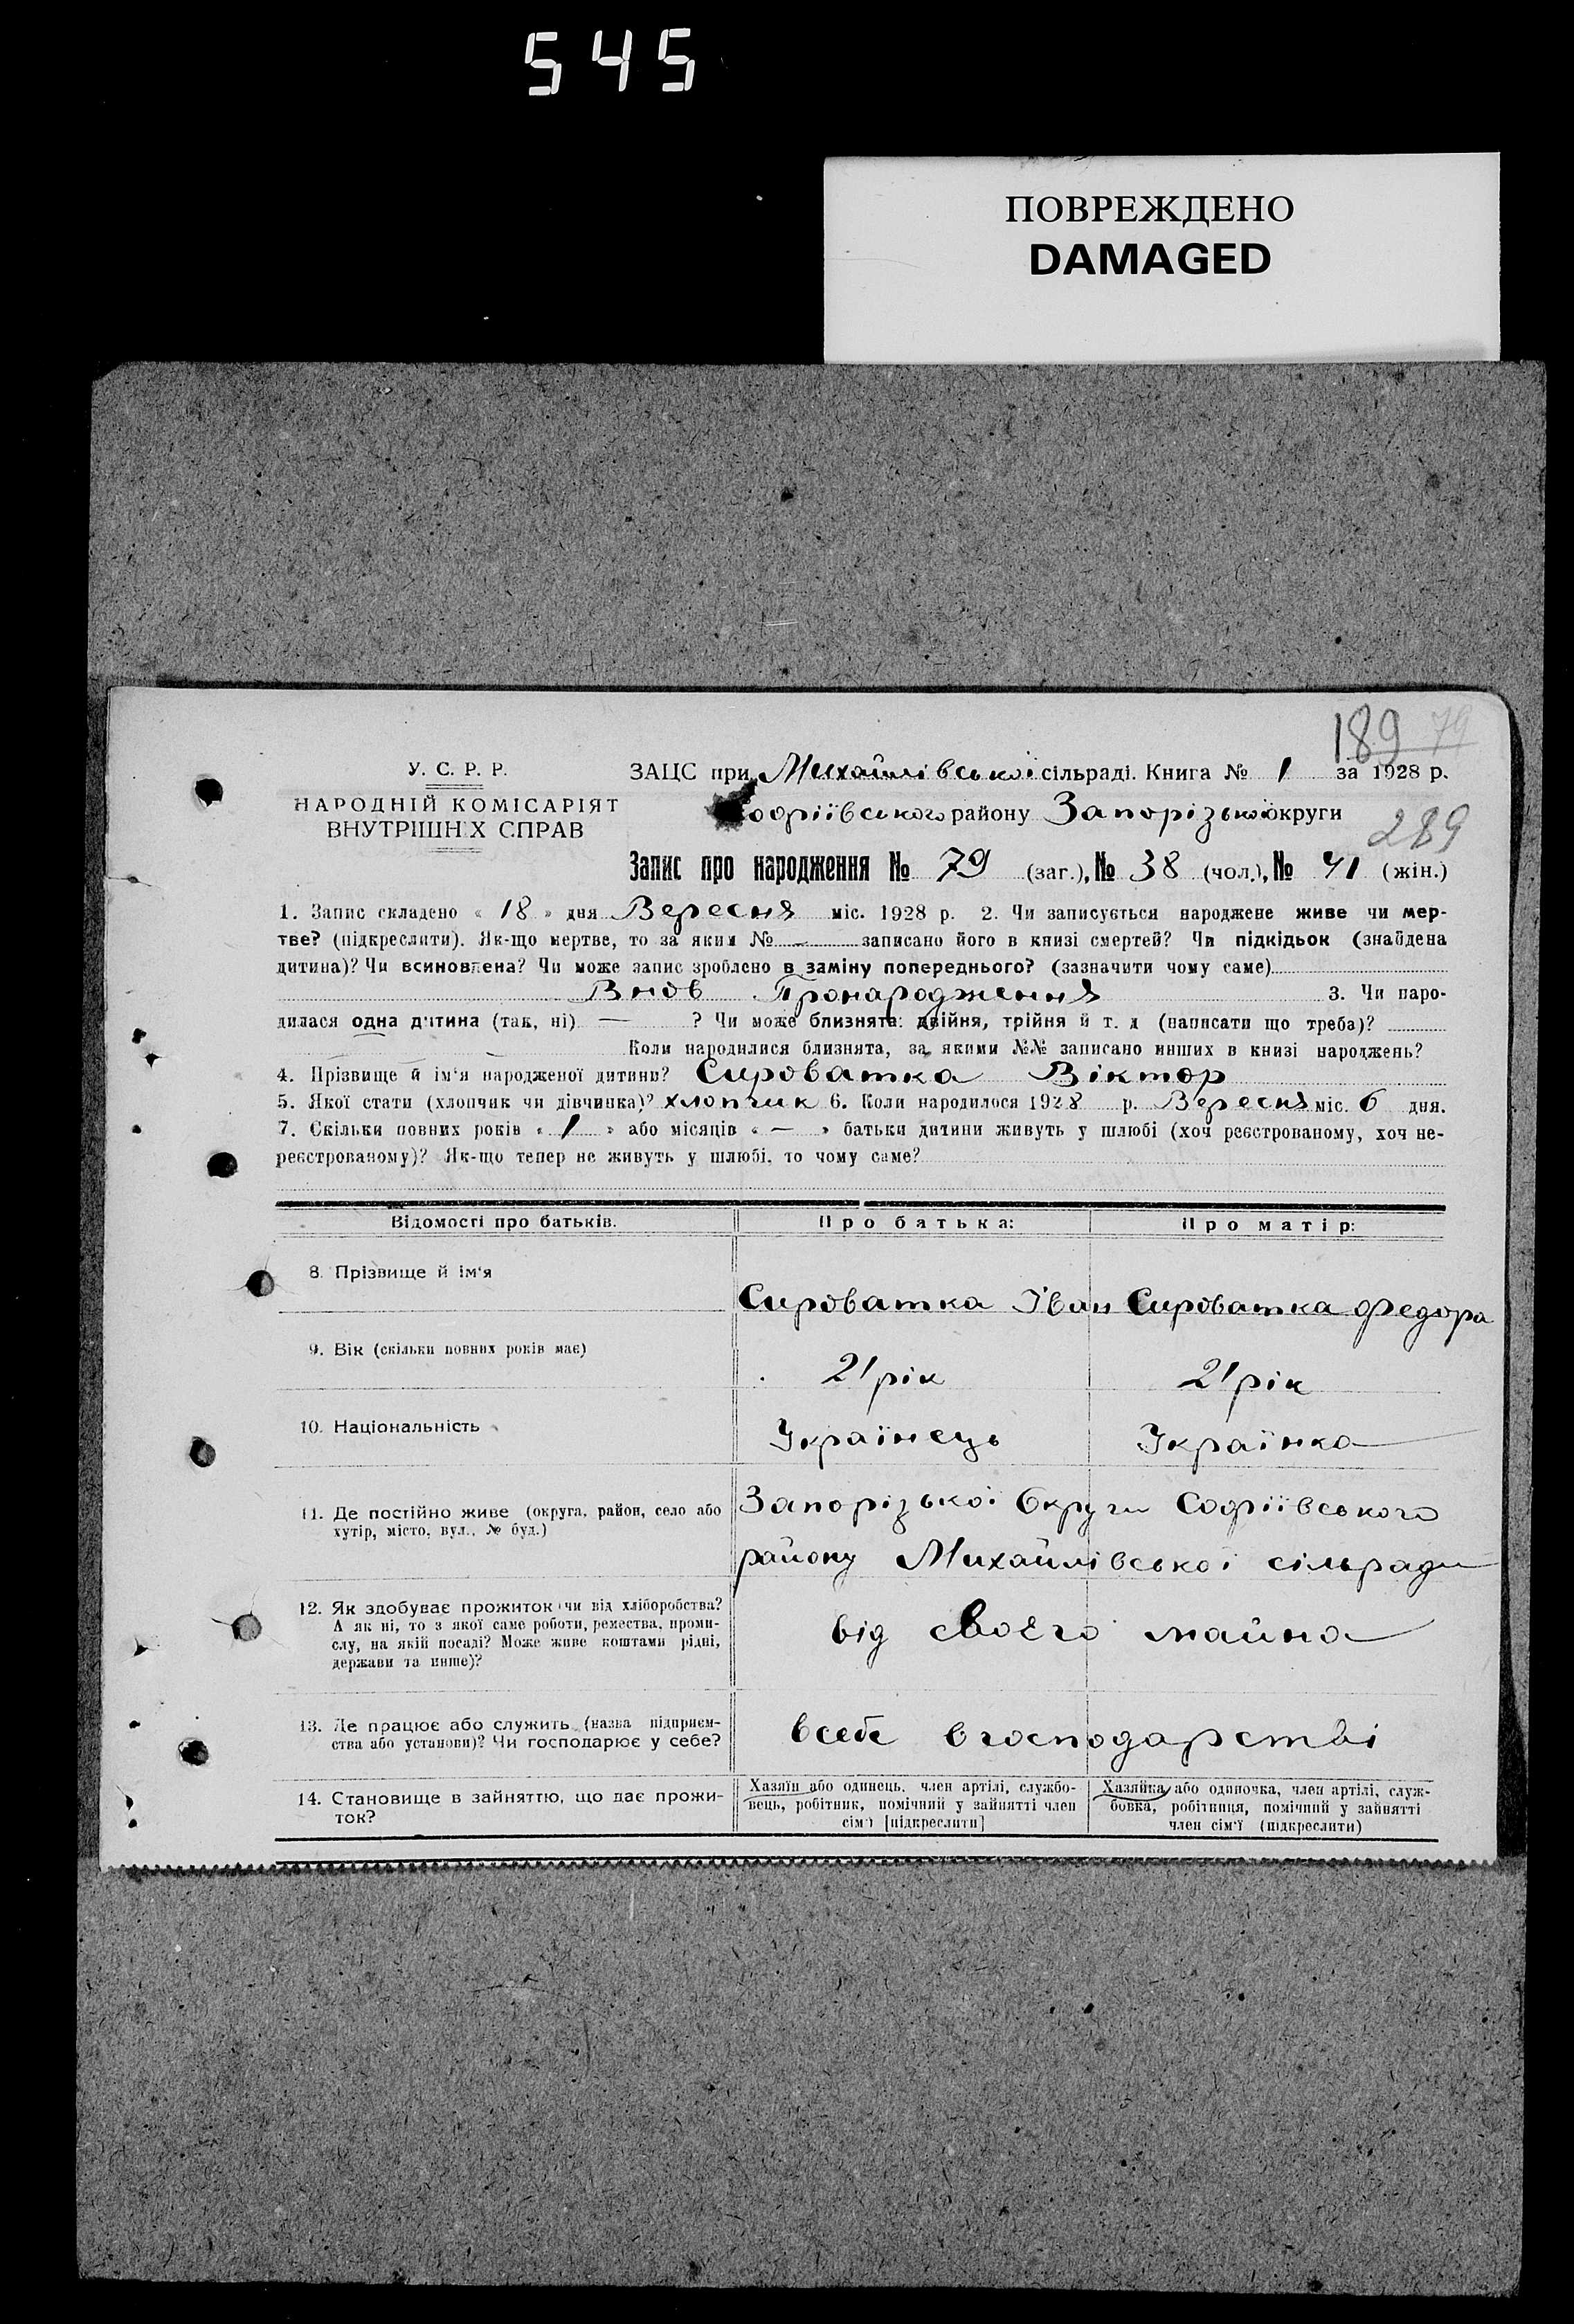 545
ПОВРЕЖДЕНО
DAMAGED
189 79
У. С. Р. Р.
НАРОДНІЙ КОМІСАРІЯТ
ВНУТРІШНІХ СПРАВ
ЗАЦС при Михайлівської сільраді. Книга № 1 за 1928 р.
Софіївського району Запорізької округи
289
Запис про народження № 79 (заг.), № 38 (чол.), № 41 (жін.)
1. Запис складено « 18 » дня Вересня міс. 1928 р. 2. Чи записується народжене живе чи мер-
тве? (підкреслити). Як-що мертве, то за яким № — записано його в книзі смертей? Чи підкідьок (знайдена
дитина)? Чи всиновлена? Чи може запис зроблено в заміну попереднього? (зазначити чому саме)
Внов Пронародження 3. Чи наро-
дилася одна дитина (так, ні) — ? Чи може близнята: двійня, трійня й т. д (написати що треба)?
— Коли народилися близнята, за якими №№ записано инших в книзі народжень?
4. Прізвище й ім'я народженої дитини? Сироватка Віктор
5. Якої стати (хлопчик чи дівчинка)? хлопчик 6. Коли народилося 1928 р. Вересня міс. 6 дня.
7. Скільки повних років « 1 » або місяців « — » батьки дитини живуть у шлюбі (хоч реєстрованому, хоч не-
реєстрованому)? Як-що тепер не живуть у шлюбі, то чому саме?
Відомості про батьків. Про батька: Про матір:
8. Прізвище й ім'я Сироватка Іван Сироватка Федора
9. Вік (скільки повних років має) 21 рік 21 рік
10. Національність Українець Українка
11. Де постійно живе (округа, район, село або
хутір, місто, вул., № буд.)
Запорізької Округи Софіївського
району Михайлівської сільради
12. Як здобуває прожиток (чи від хліборобства?
А як ні, то з якої саме роботи, ремества, проми-
слу, на якій посаді? Може живе коштами рідні,
держави та инше)?
від своєго майна
13. Де працює або служить (назва підприєм-
ства або установи)? Чи господарює у себе?
всебе вгосподарстві
14. Становище в зайняттю, що дає прожи-
ток?
Хазяїн або одинець, член артілі, службо-
вець, робітник, помічний у зайнятті член
сім'ї [підкреслити]
Хазяйка або одиночка, член артілі, служ-
бовка, робітниця, помічний у зайнятті
член сім'ї (підкреслити)